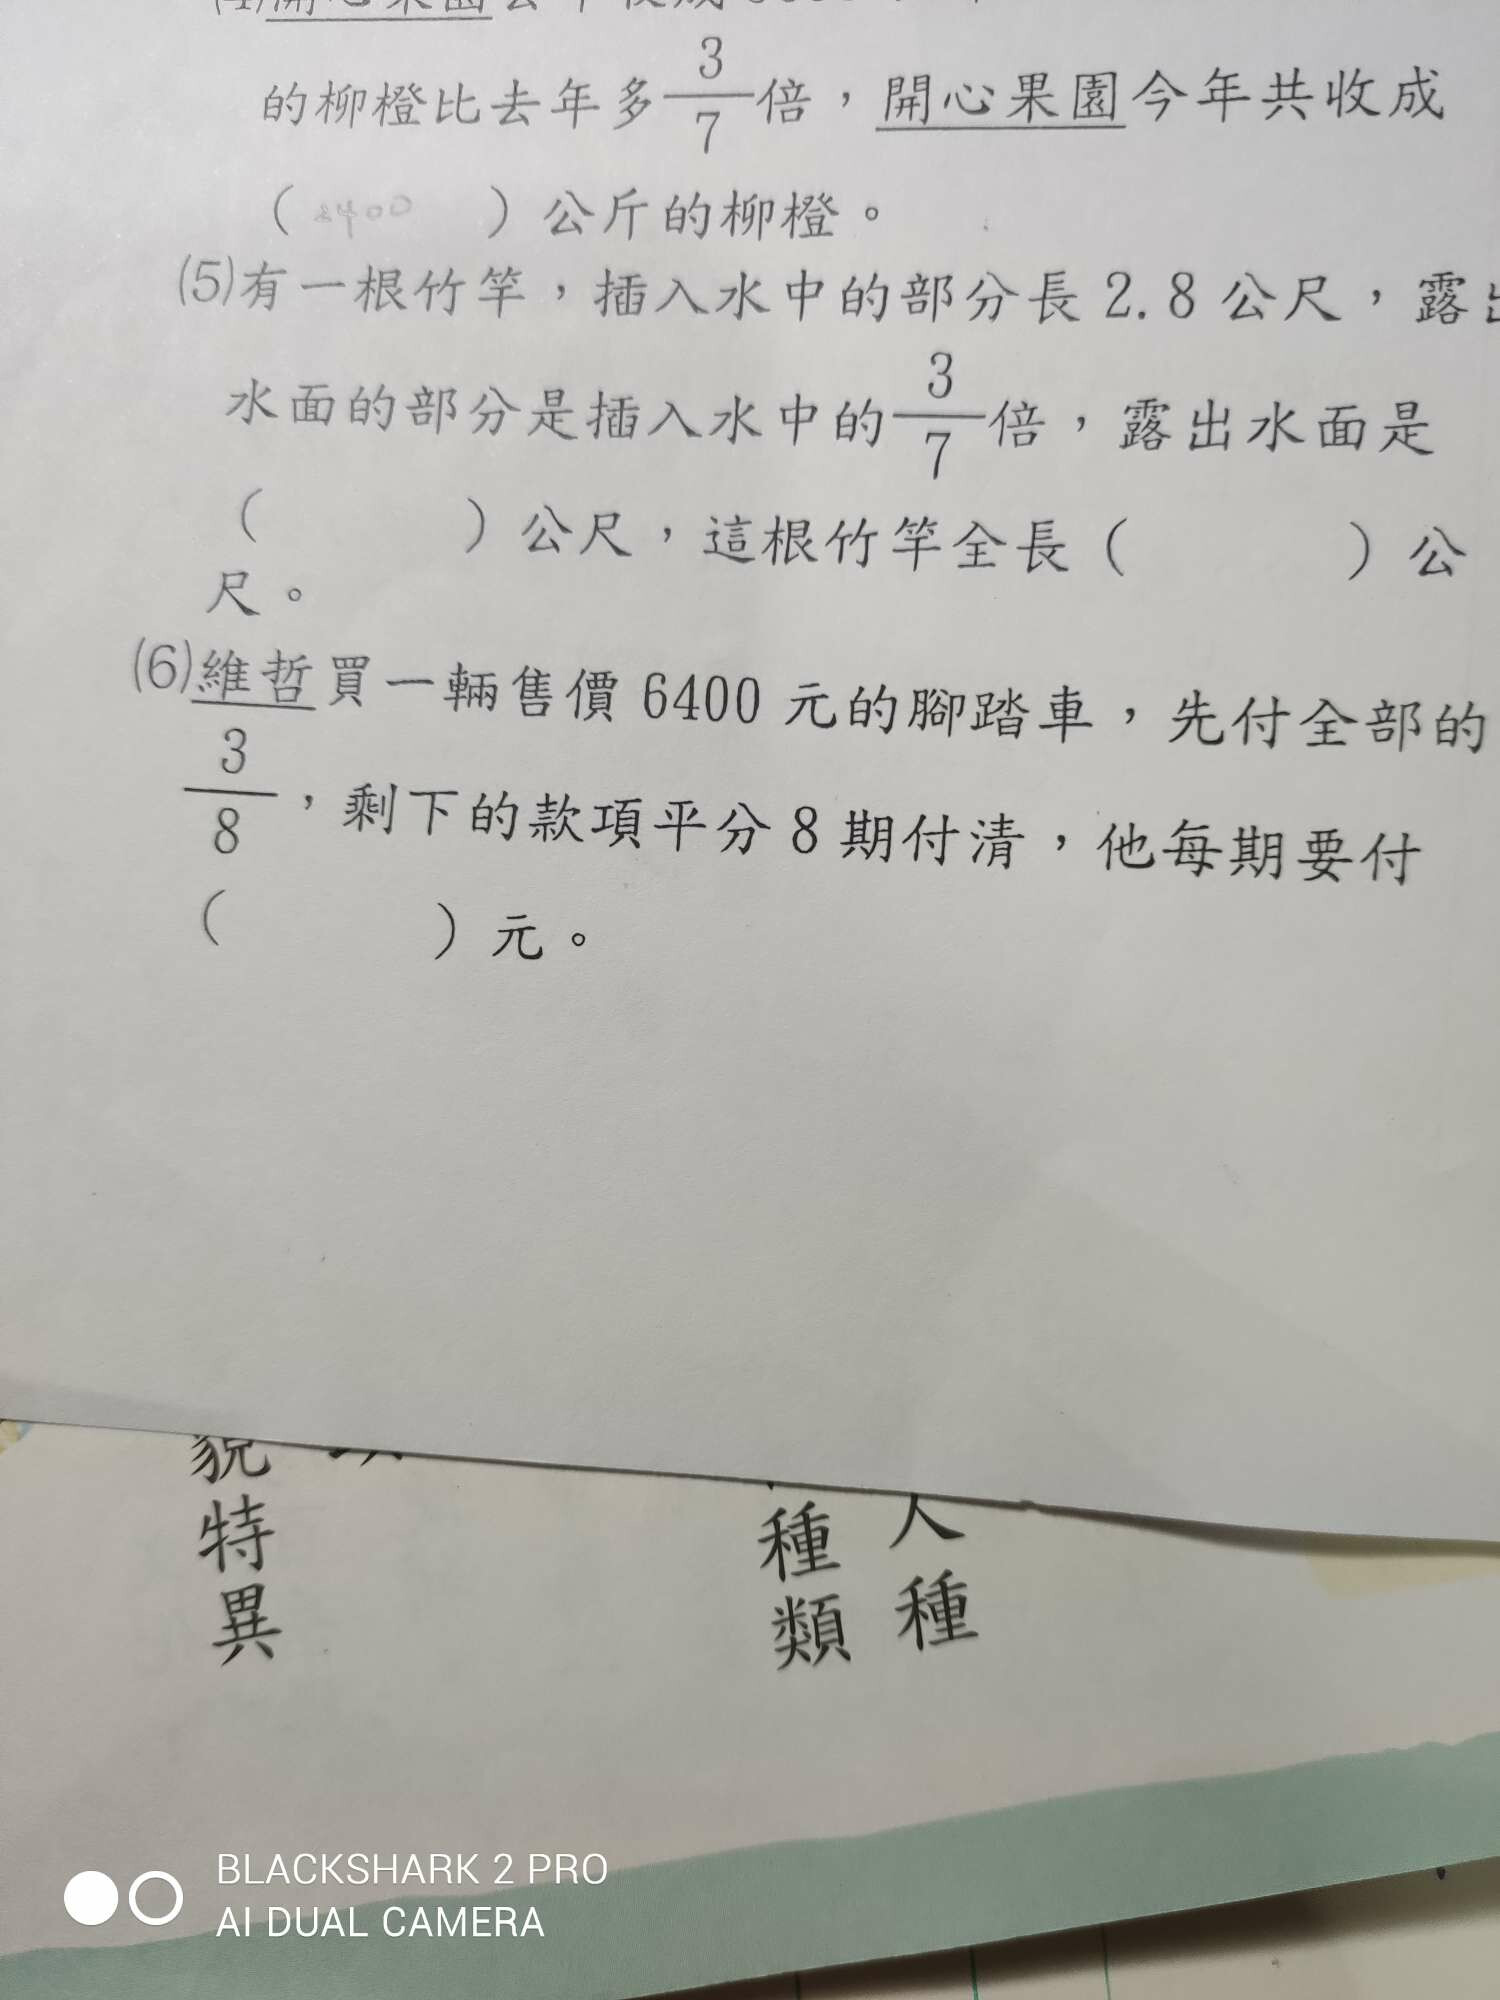 (4)開心果園去年收成
的柳橙比去年多3/7倍，開心果園今年共收成
（2400）公斤的柳橙。
(5)有一根竹竿，插入水中的部分長2.8公尺，露出
水面的部分是插入水中的3/7倍，露出水面是
（　　　）公尺，這根竹竿全長（　　　）公
尺。
(6)維哲買一輛售價6400元的腳踏車，先付全部的
3/8，剩下的款項平分8期付清，他每期要付
（　　　）元。
貌特異
種類
人種
BLACKSHARK 2 PRO
AI DUAL CAMERA